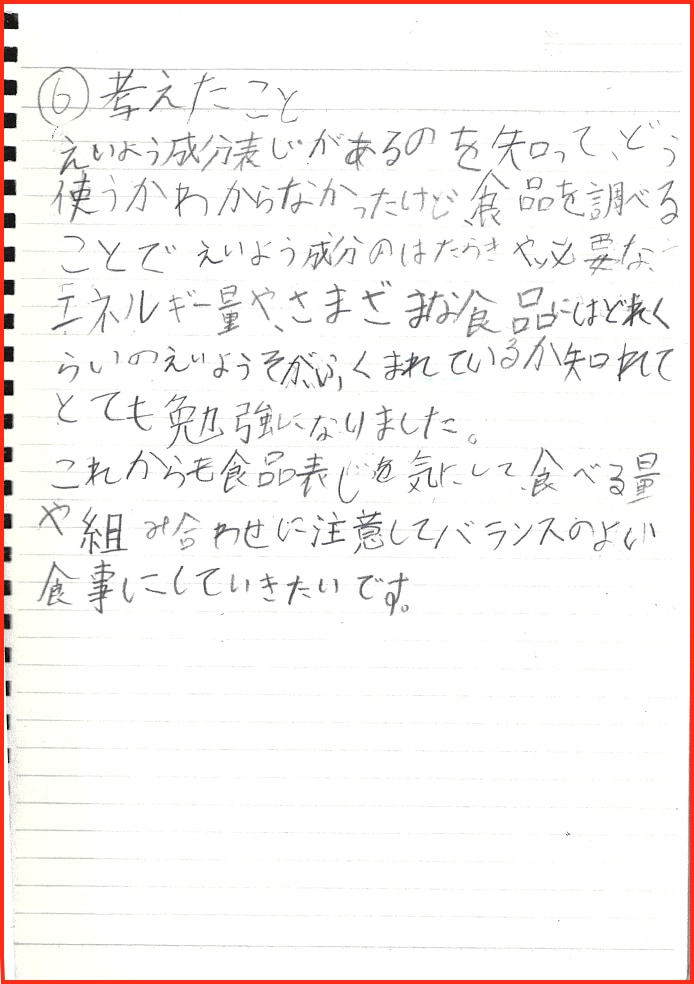 ⑥考えたこと
えいよう成分表じがあるのを知って、どう
使うかわからなかったけど、食品を調べる
ことでえいよう成分のはたらきや、必要な
エネルギー量や、さまざまな食品にはどれく
らいのえいようそがふくまれているか知れて
とても勉強になりました。
これからも食品表じを気にして、食べる量
や組み合わせに注意してバランスのよい
食事にしていきたいです。